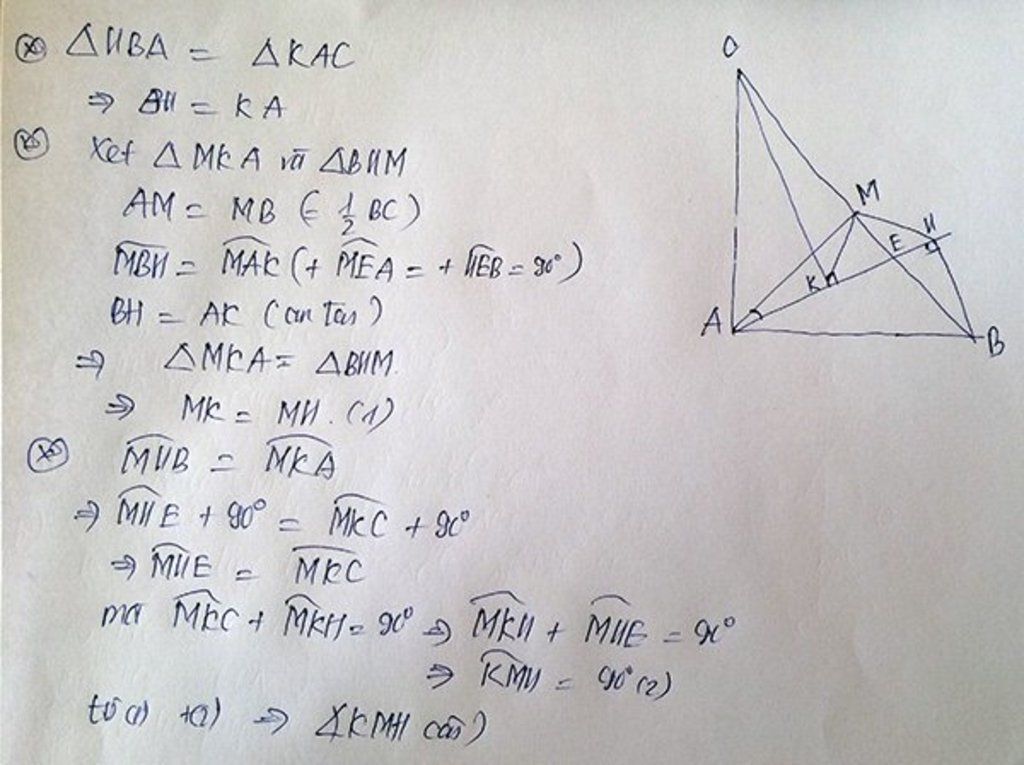 ΔHBA = ΔKAC
⇒ BH = KA
Xet Δ MKA và ΔBHM
AM = MB (= 1/2 BC)
MBH = MAK (+ MEA = + HEB = 90°)
BH = AK
⇒ ΔMKA = ΔBHM.
⇒ MK = MH. (1)
MHB = MKA
⇒ MHE + 90° = MKC + 90°
⇒ MHE = MKC
mà MKC + MKH = 90° ⇒ MKH + MHE = 90°
⇒ KMH = 90° (2)
từ (1) + (2) ⇒ KMH
C
M
H
E
K
A
B